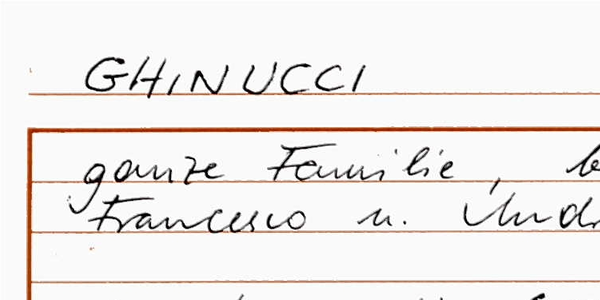 GHINUCCI
ganze Familie,
Francesco u.